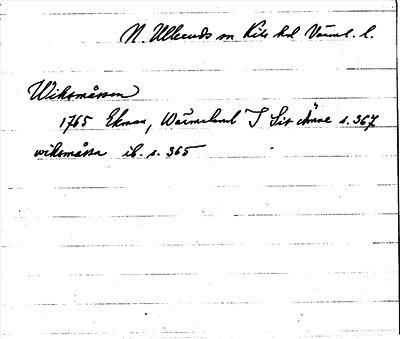 N. Ulleruds sn Kils hd Värml. l.
Wiksmåssen
1765 Ekman, Wärmeland I sit ämne s. 367
wiksmåssa ib. s. 365